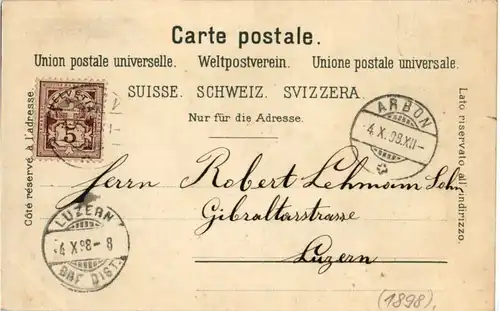 Carte postale.
Union postale universelle. Weltpostverein. Unione postale universale.
SUISSE. SCHWEIZ. SVIZZERA.
Nur für die Adresse.
Côté réservé à l'adresse.
Lato riservato all'indirizzo.
5
ARBON
4.X.98.XII-
Herrn Robert Lehmann Sohn
Gibraltarstrasse
Luzern
LUZERN
4.X.98-8
BRF. DIST.
(1898).